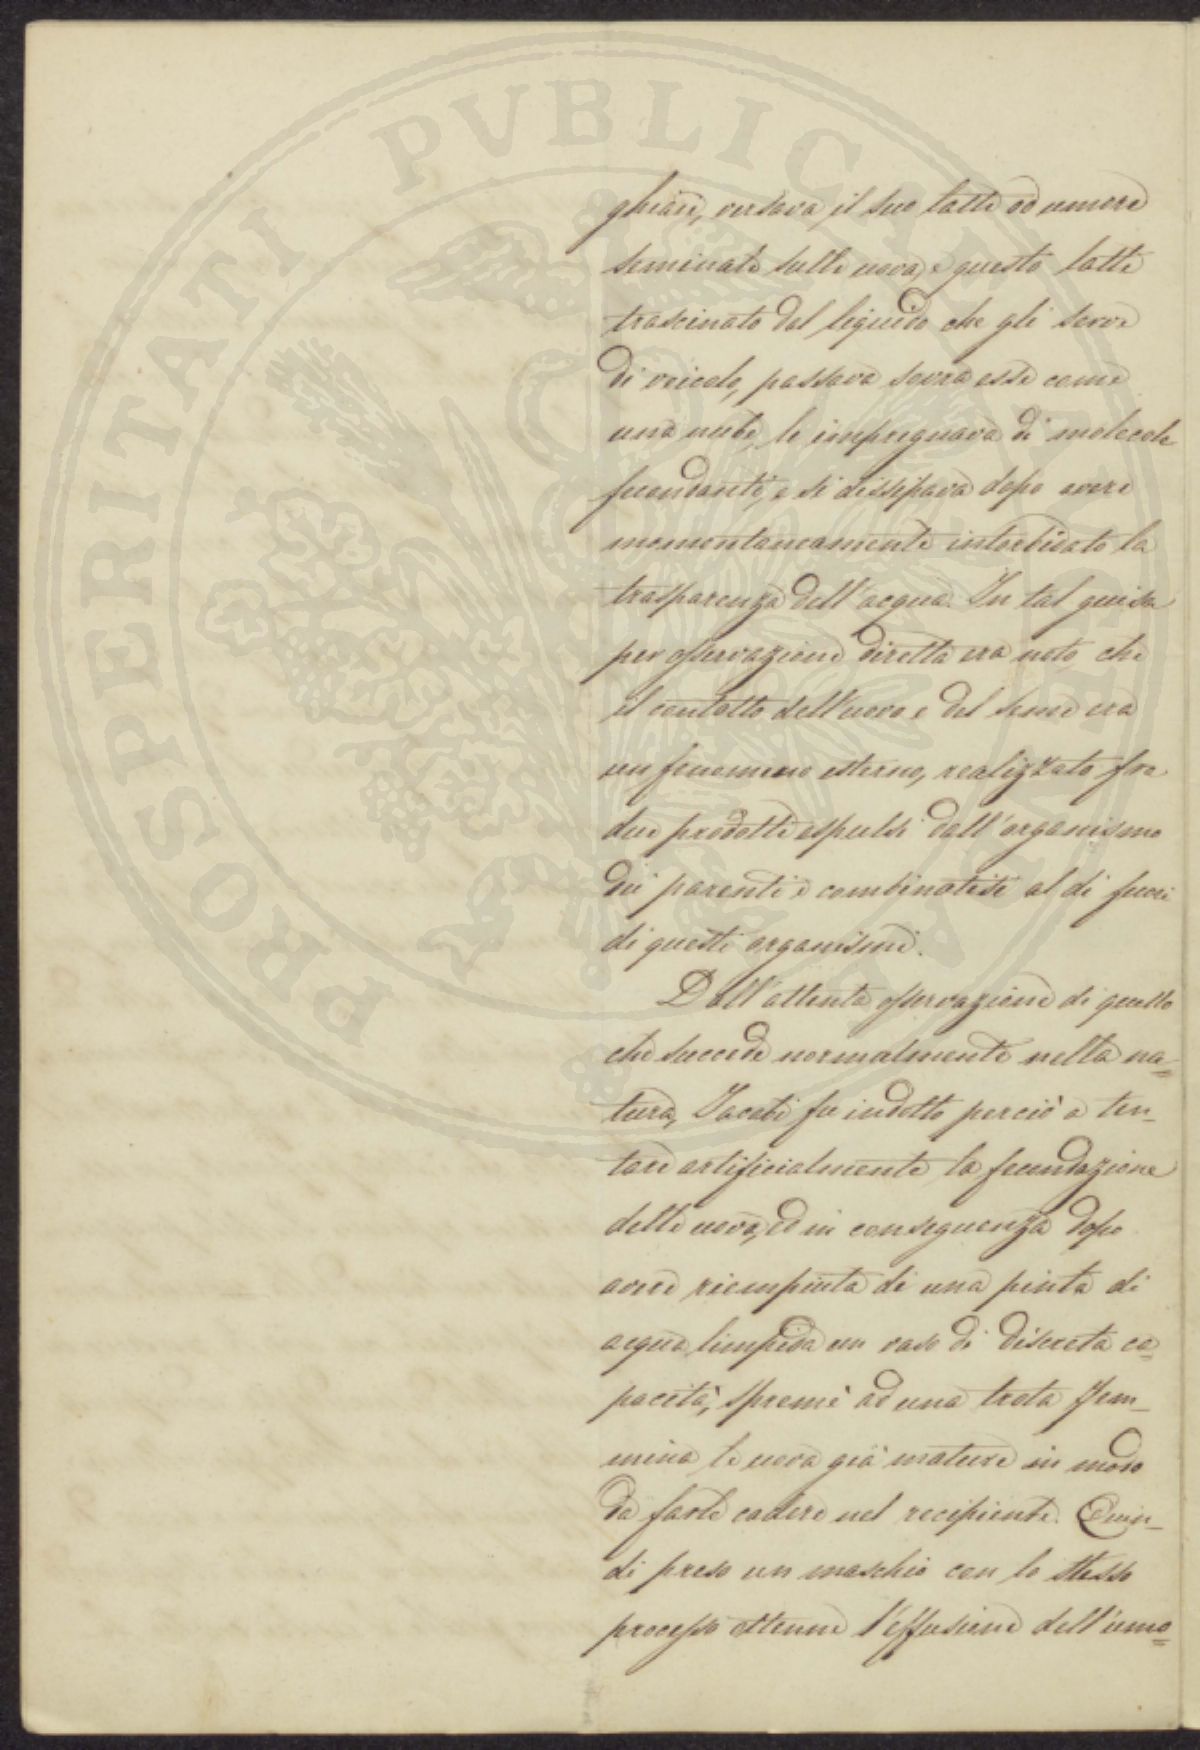 PROSPERITATI PVBLICAE AVGENDAE
ghiaie, versava il suo latte od umore
seminale sulle uova, e questo latte
trascinato dal liquido che gli serve
di veicolo, passava sovra esse come
una nube, le impregnava di molecole
fecondanti, e si dissipava dopo avere
momentaneamente intorbidato la
trasparenza dell'acqua. In tal guisa
per osservazione diretta era noto, che
il contatto dell'uovo e del seme era
un fenomeno esterno, realizzato fra
due prodotti espulsi dall'organismo
dei parenti e combinatisi al di fuori
di questi organismi.
Dall'attenta osservazione di quello
che succede normalmente nella na=
tura, Jacobi fu indotto perciò a ten_
tare artificialmente la fecondazione
delle uova, ed in conseguenza dopo
avere riempiuta di una pinta di
acqua limpida un vaso di discreta ca=
pacità, spremè ad una trota fem_
mina le uova già mature in modo
da farle cadere nel recipiente. Quin_
di preso un maschio con lo stesso
processo ottenne l'effusione dell'umo=